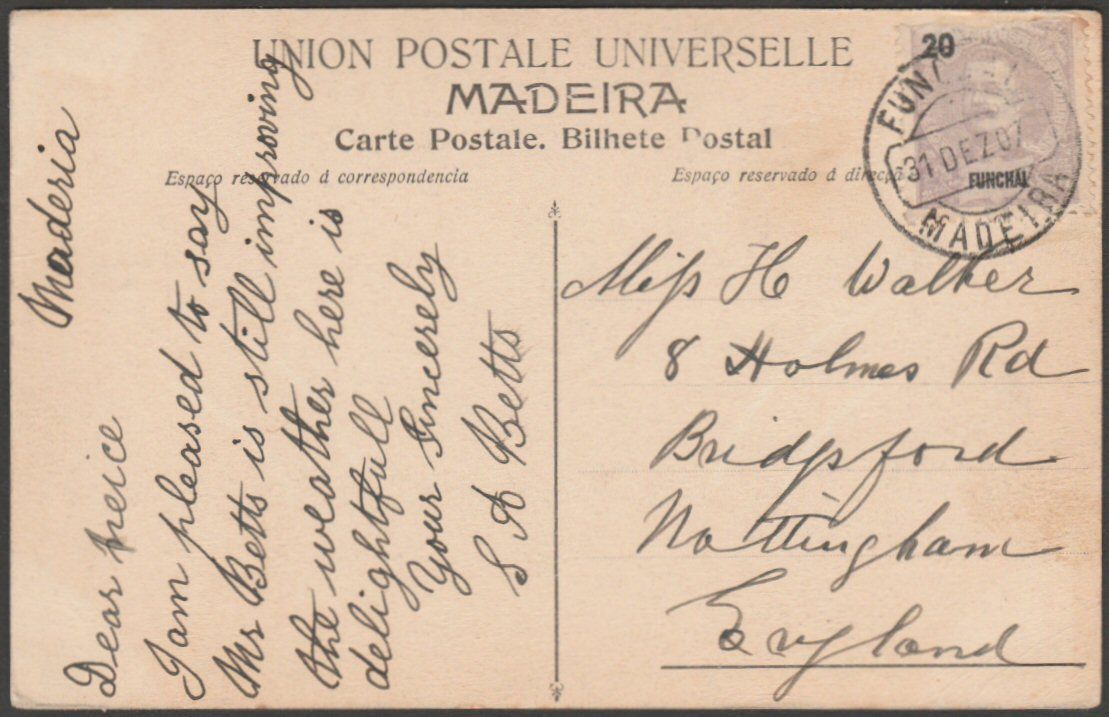 UNION POSTALE UNIVERSELLE
MADEIRA
Carte Postale. Bilhete Postal
Espaço reservado á correspondencia
Espaço reservado á direcção
20
FUNCHAL
31 DEZ 07
FUNCHAL
MADEIRA
Maderia
Dear neice
I am pleased to say
Mr Betts is still improving
the weather here is
delightfull
Your Sincerely
S A Betts
Miss H Walker
8 Holmes Rd
Bridgsford
Nottingham
England